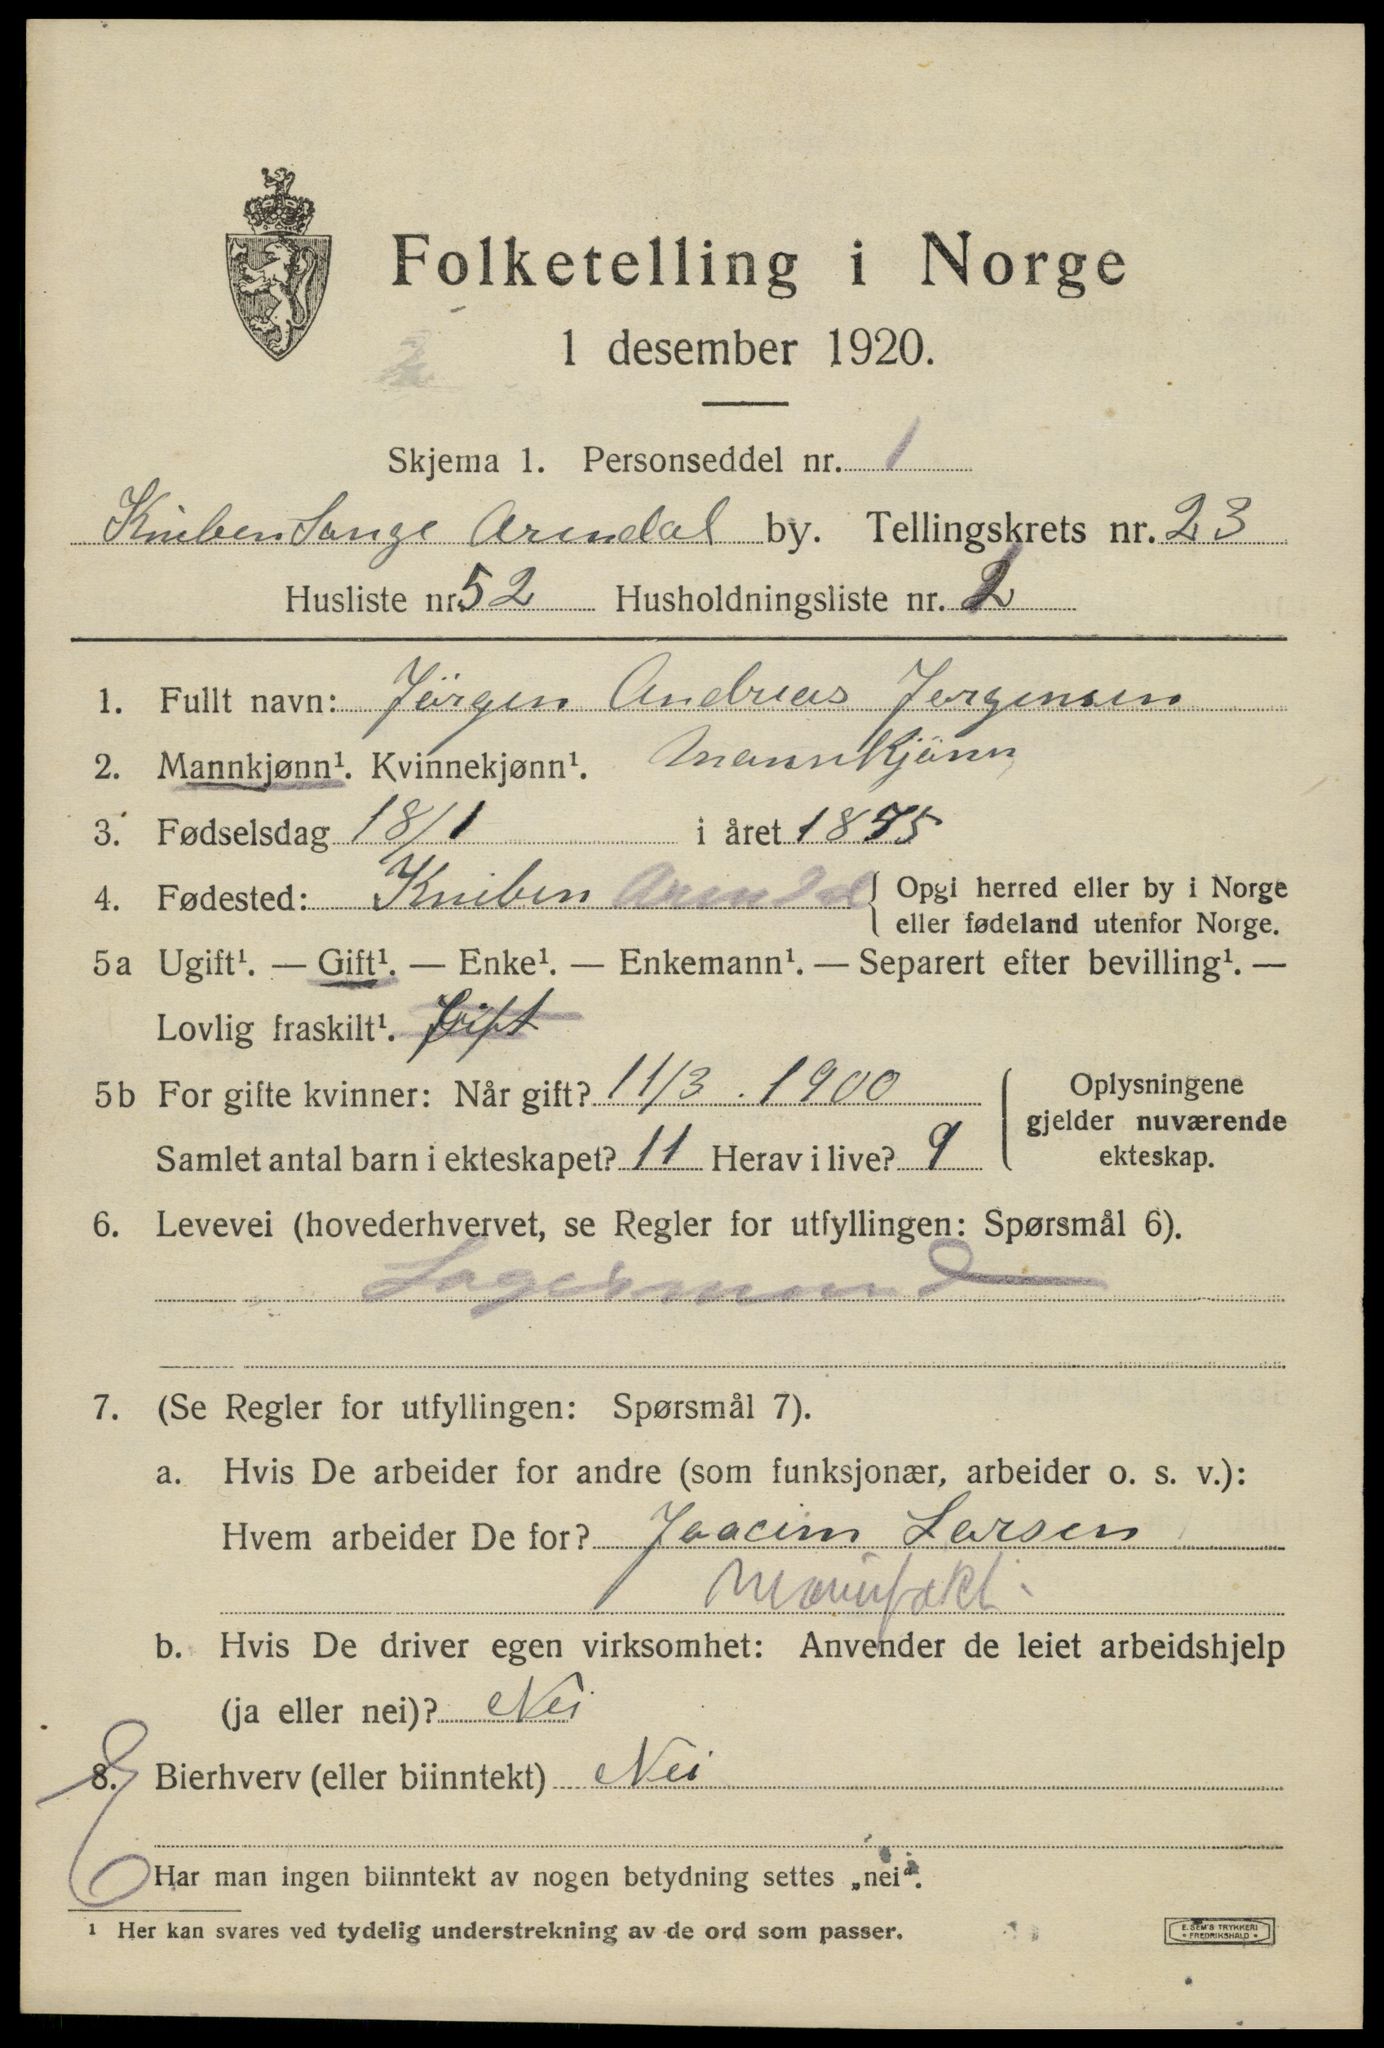 Folketelling i Norge
1 desember 1920.
Skjema 1. Personseddel nr. 1
Kniben Songe Arendal by. Tellingskrets nr. 23
Husliste nr. 52 Husholdningsliste nr. 2
1. Fullt navn: Jörgen Andreas Jorgensen
2. Mannkjønn¹. Kvinnekjønn¹. Mannkjönn
3. Fødselsdag 18/1 i året 1875
4. Fødested: Kniben Arendal { Opgi herred eller by i Norge
eller fødeland utenfor Norge.
5a Ugift¹. — Gift¹. — Enke¹. — Enkemann¹. — Separert efter bevilling¹. —
Lovlig fraskilt¹. Gift
5b For gifte kvinner: Når gift? 11/3. 1900
Samlet antal barn i ekteskapet? 11 Herav i live? 9
Oplysningene
gjelder nuværende
ekteskap.
6. Levevei (hovederhvervet, se Regler for utfyllingen: Spørsmål 6).
Lagermand
7. (Se Regler for utfyllingen: Spørsmål 7).
a. Hvis De arbeider for andre (som funksjonær, arbeider o. s. v.):
Hvem arbeider De for? Joacim Larsen
Manufakt.
b. Hvis De driver egen virksomhet: Anvender de leiet arbeidshjelp
(ja eller nei)? Nei
8. Bierhverv (eller biinntekt) Nei
Har man ingen biinntekt av nogen betydning settes „nei".
¹ Her kan svares ved tydelig understrekning av de ord som passer.
E. SEM'S TRYKKERI
• FREDRIKSHALD •